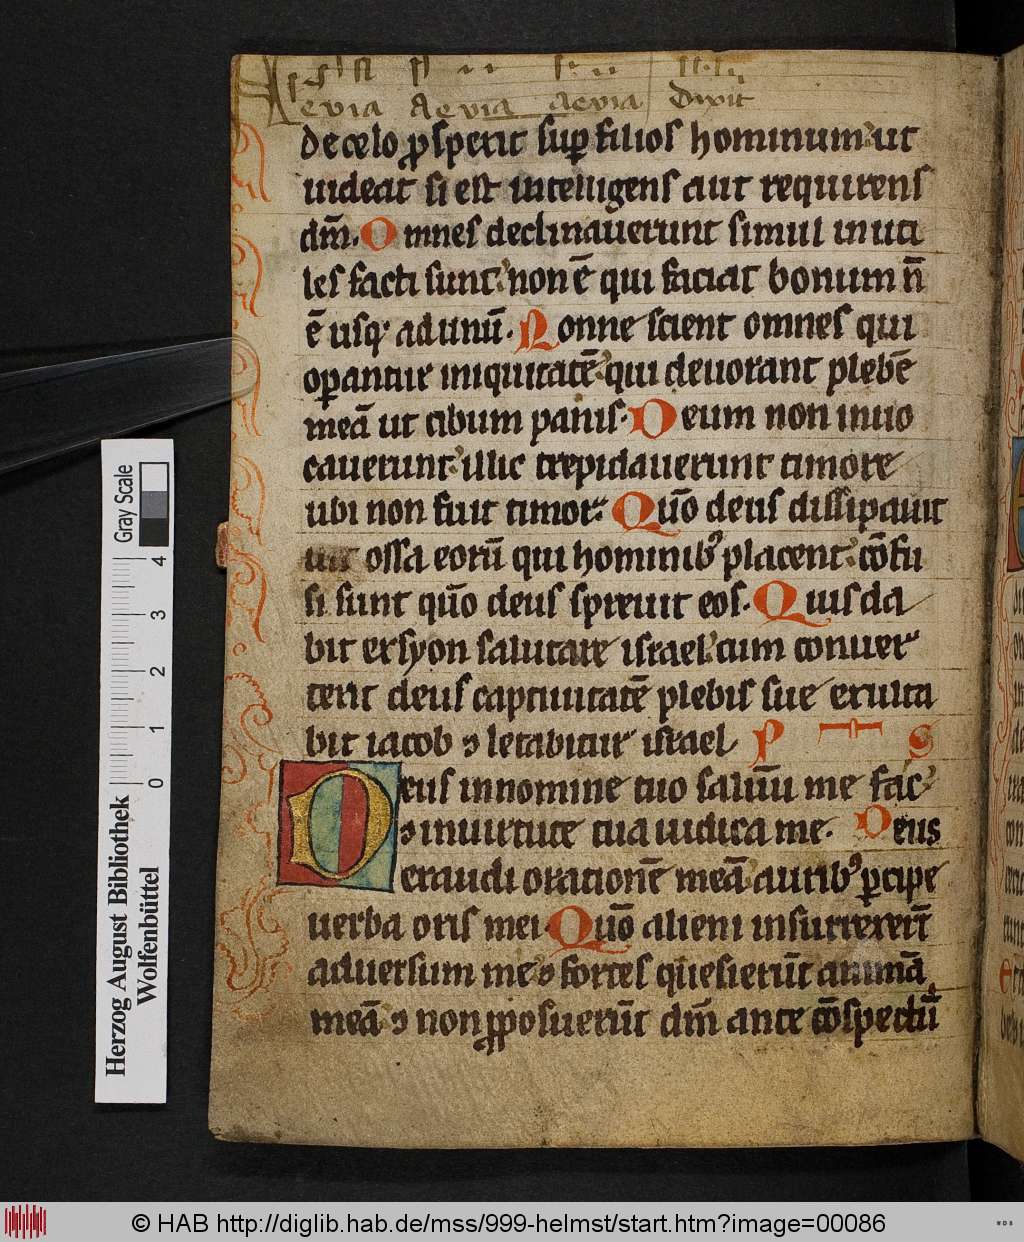 Aevia Aevia aevia Dixit
de celo ꝓsperit suꝑ filios hominum ut
uideat si est intelligens aut requirens
dm̄. Omnes declinauerunt simul inuti
les facti sunt non ē qui faciat bonum n̄
ē usq; ad unū. Nonne scient omnes qui
oꝑantur iniquitatē qui deuorant plebē
meā ut cibum panis. Deum non inuo
cauerunt illic trepidauerunt timore
ubi non fuit timor. Quō deus dissipauit
ossa eorū qui hominibꝰ placent cōfu
si sunt quō deus spreuit eos. Quis da
bit ex syon salutare israel cum conuer
terit deus captiuitatē plebis sue exulta
bit iacob ⁊ letabitur israel P S
Deus in nomine tuo saluū me fac
⁊ in uirtute tua iudica me. Deus
exaudi orationē meā auribꝰ ꝑcipe
uerba oris mei. Quō alieni insurrexerūt
aduersum me ⁊ fortes quesierūt animā
meā ⁊ non ꝓposuerūt dm̄ ante cōspectū
Gray Scale
4 3 2 1 0
Herzog August Bibliothek
Wolfenbüttel
© HAB http://diglib.hab.de/mss/999-helmst/start.htm?image=00086